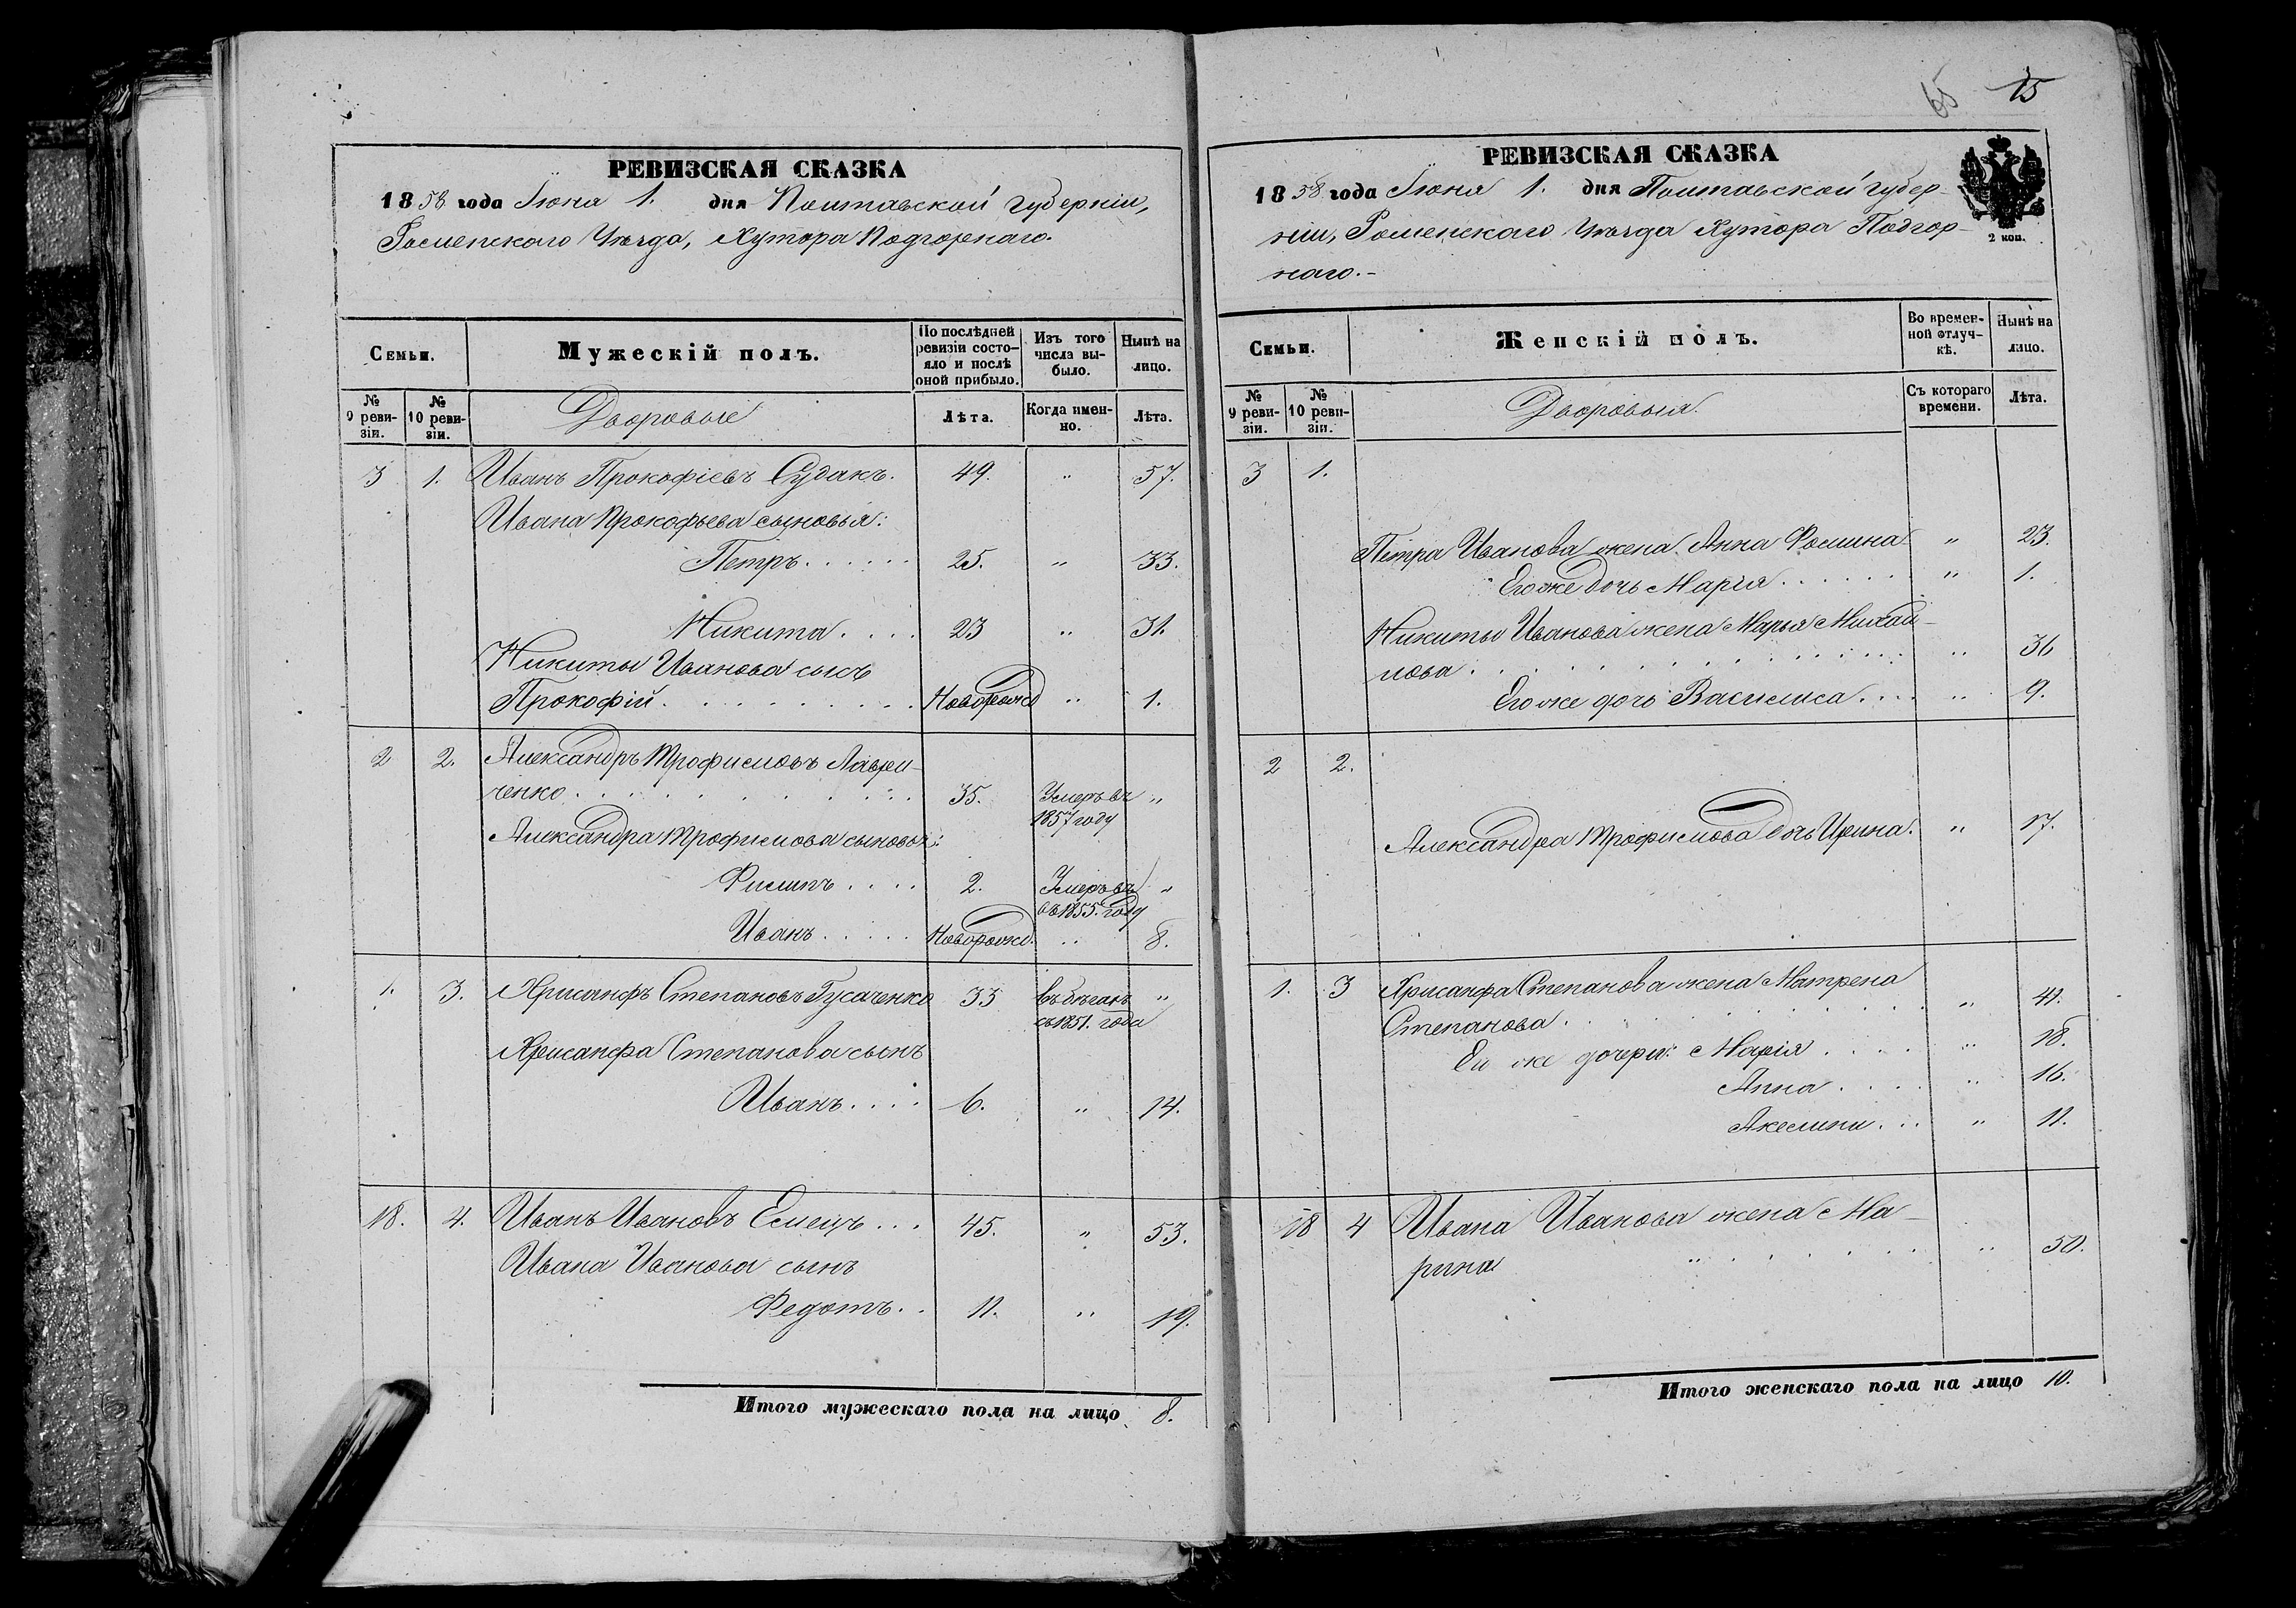 РЕВИЗСКАЯ СКАЗКА
1858 года Іюня 1. дня Полтавской губерніи,
Роменскаго Уѣзда, Хутора Подгорнаго.
Семьи.
Мужескій полъ.
По послѣдней ревизіи состояло и послѣ оной прибыло.
Изъ того числа выбыло.
Нынѣ на лицо.
№ 9 ревизіи.
№ 10 ревизіи.
Дворовые
Лѣта.
Когда именно.
Лѣта.
3 1. Иванъ Прокофіевъ Судакъ. 49. " 57.
Ивана Прокофьева сыновья:
Петръ...... 25. " 33.
Никита.... 23 " 31.
Никиты Иванова сынъ
Прокофій......... Новорожд " 1.
2 2. Александръ Трофимовъ Лаврен-
ченко......... 35. Умеръ въ "
1857 году
Александра Трофимова сыновья:
Филипъ.... 2. Умеръ въ "
въ 1855. году
Иванъ..... Новорожд. " 8.
1. 3. Хрисанфъ Степановъ Гусаченко 33 въ бѣгахъ "
съ 1851. года
Хрисанфа Степанова сынъ
Иванъ.... 6. " 14.
18. 4. Иванъ Ивановъ Есмецъ... 45. " 53.
Ивана Иванова сынъ
Федотъ.. 11. " 19.
Итого мужескаго пола на лицо 8.
65 15
РЕВИЗСКАЯ СКАЗКА
1858 года Іюня 1. дня Полтавской губер-
ніи, Роменскаго Уѣзда Хутора Подгор-
наго.-
2 коп.
Семьи.
Женскій полъ.
Во временной отлучкѣ.
Нынѣ на лицо.
№ 9 ревизіи.
№ 10 ревизіи.
Дворовыя.
Съ котораго времени.
Лѣта.
3 1.
Петра Иванова жена Анна Фомина " 23.
Его же дочь Марія...... " 1.
Никиты Иванова жена Марья Михай-
лова............ " 36
Его же дочь Василиса.... " 9.
2 2.
Александра Трофимова дочь Ирина. " 17.
1. 3 Хрисанфа Степанова жена Матрена
Степанова.......... " 41.
Ея же дочери: Марія.... " 18.
Анна.... " 16.
Акелина... " 11.
18 4 Ивана Иванова жена Ма-
рина " ...... " 50.
Итого женскаго пола на лицо 10.